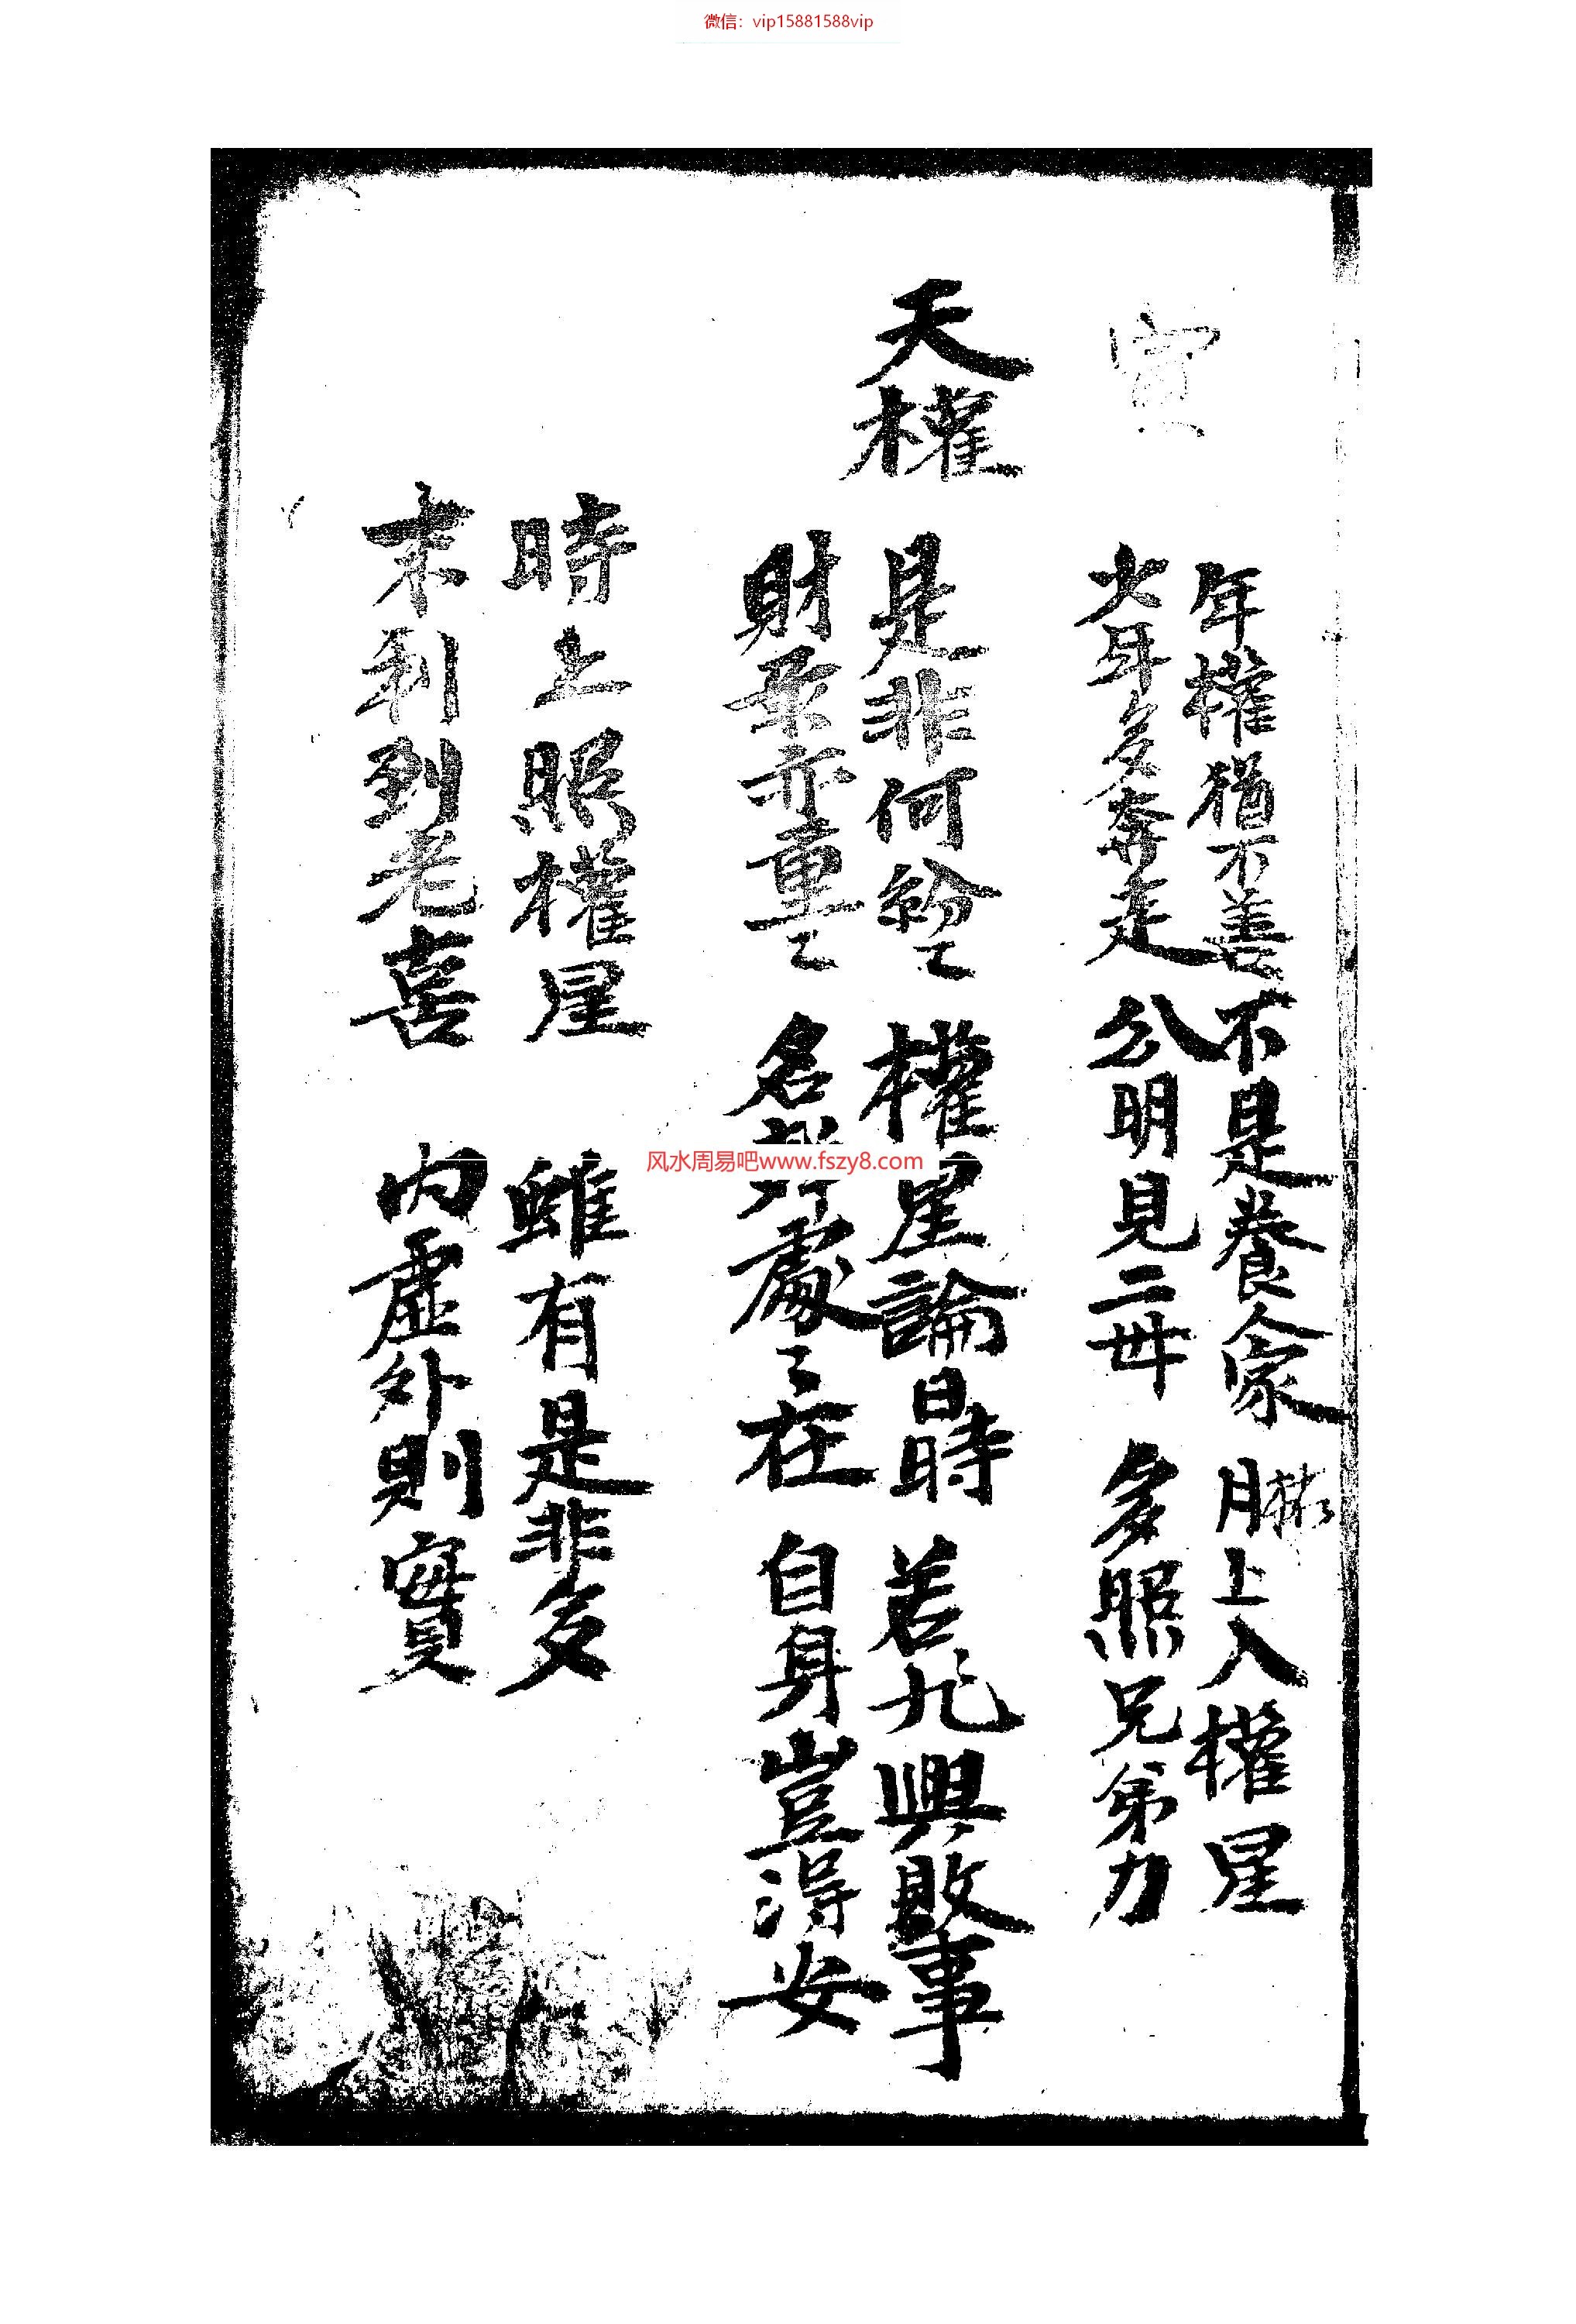 微信：vip15881588vip
寅
年權猶不善 不是養家 月上入權星
少年多奔走 公明見二毌 多照兄弟力
天權
是非何紛〻 權星論日時 若凡興敗事
財帛亦重〻 名 處〻在 自身豈得安
風水周易吧www.fszy8.com
時上照權星 雖有是非多
末利到老喜 內虛外則實